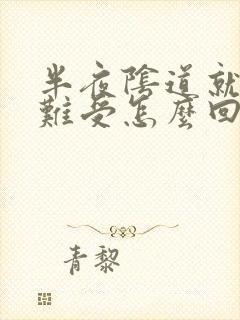 半夜陰道就
難受怎麼回
青黎